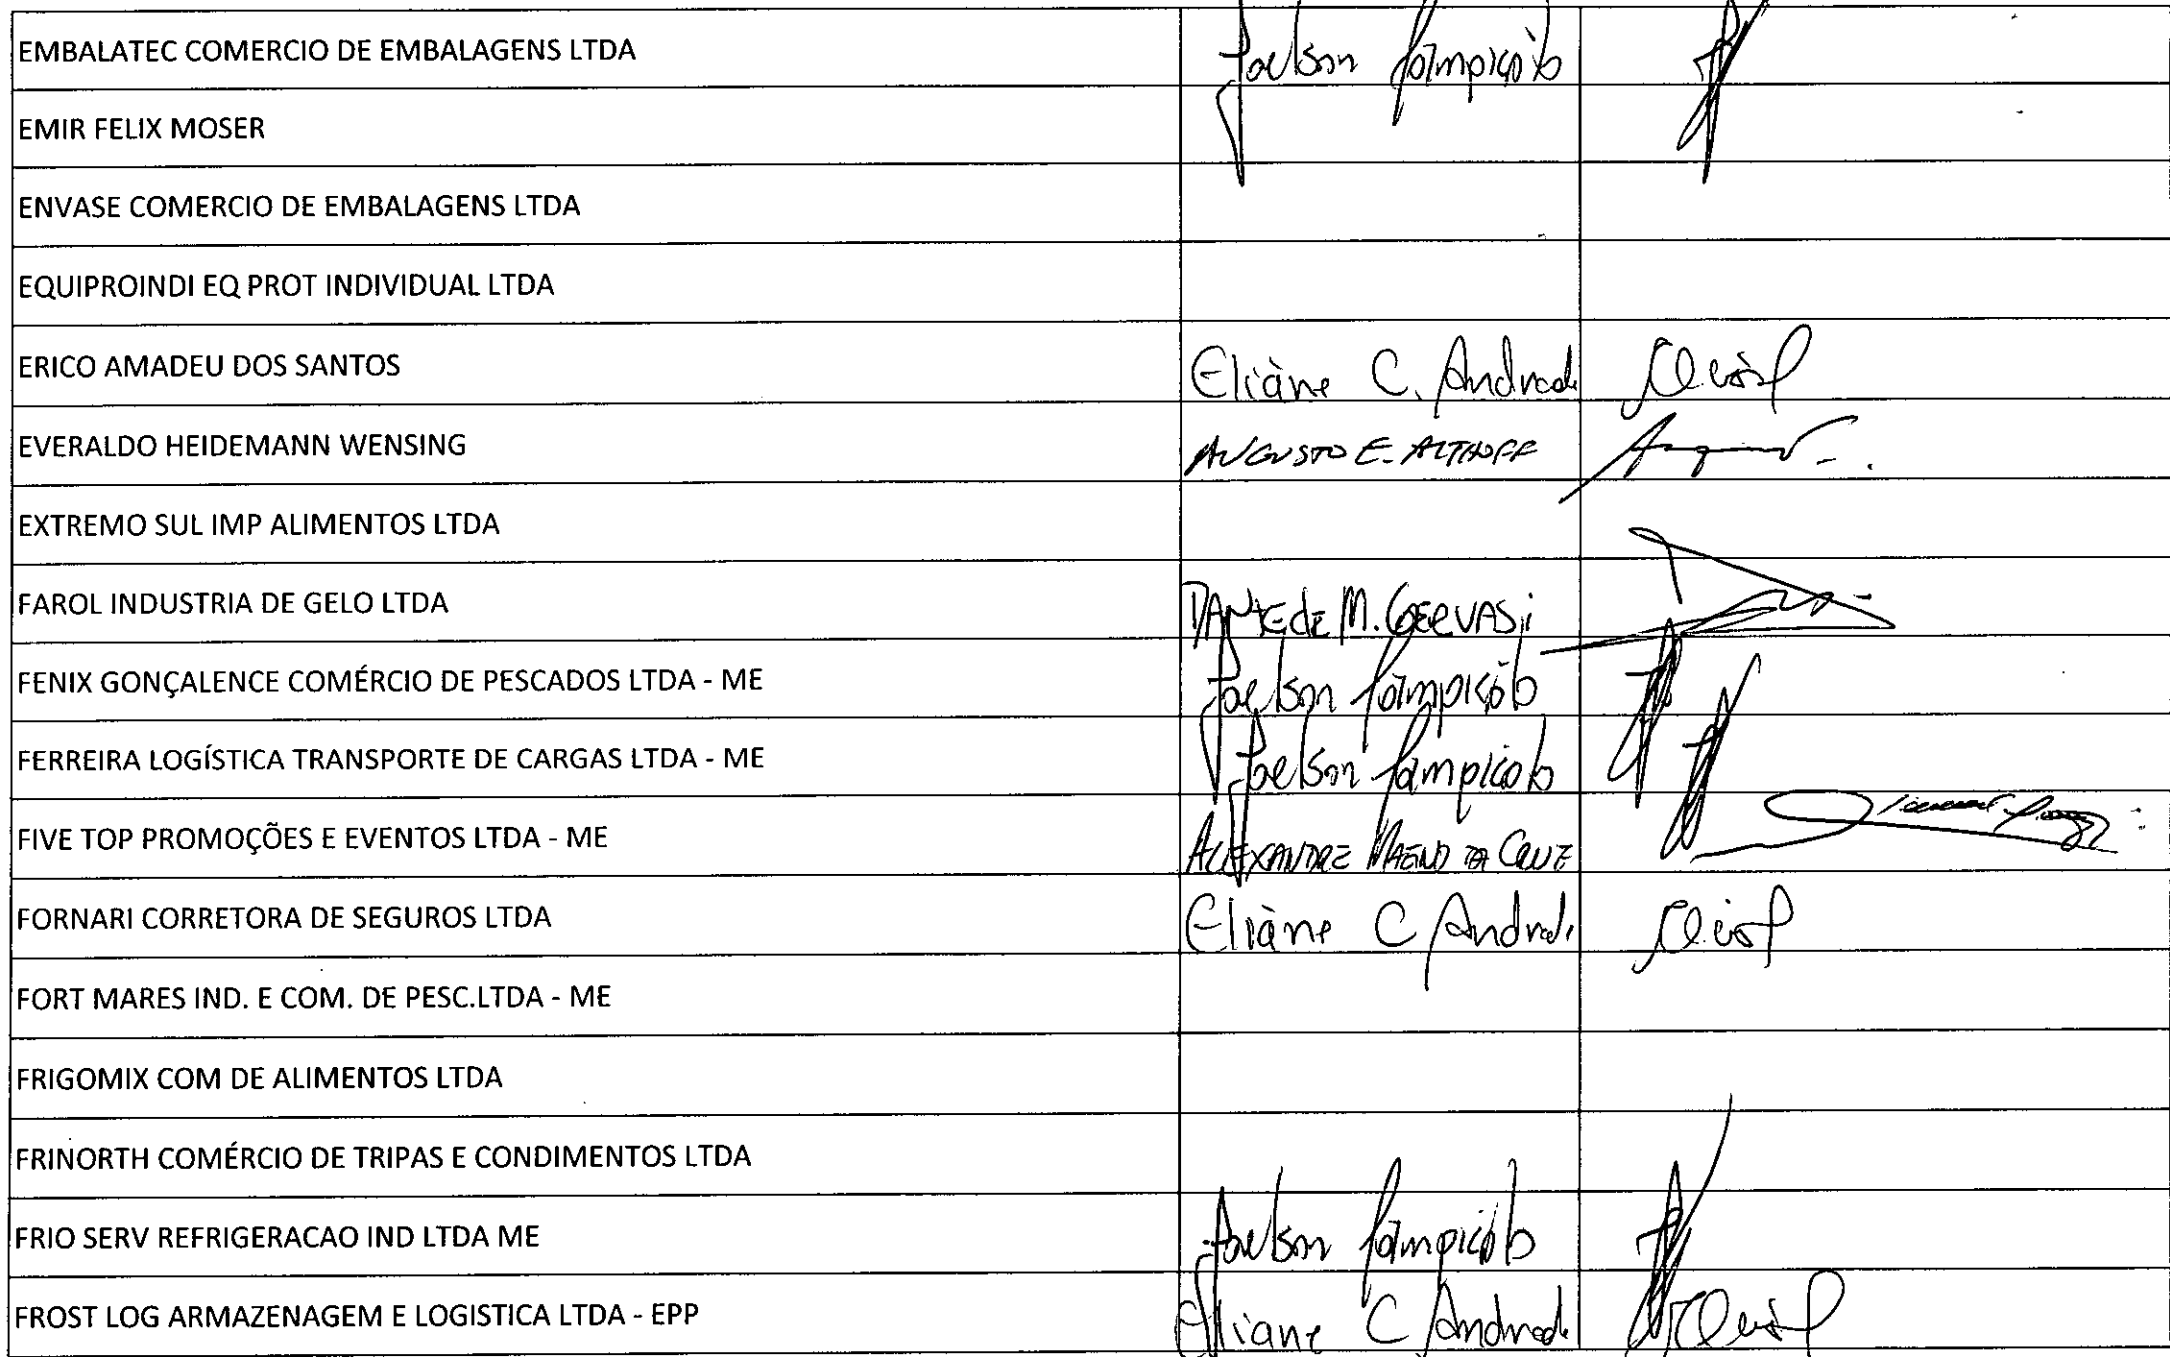 EMBALATEC COMERCIO DE EMBALAGENS LTDA Joelson
EMIR FELIX MOSER
ENVASE COMERCIO DE EMBALAGENS LTDA
EQUIPROINDI EQ PROT INDIVIDUAL LTDA
ERICO AMADEU DOS SANTOS Eliane C. Andrade
EVERALDO HEIDEMANN WENSING AUGUSTO E. ALTHOFF
EXTREMO SUL IMP ALIMENTOS LTDA
FAROL INDUSTRIA DE GELO LTDA DANTE DE M. GERVASI
FENIX GONÇALENCE COMÉRCIO DE PESCADOS LTDA - ME Joelson
FERREIRA LOGÍSTICA TRANSPORTE DE CARGAS LTDA - ME Joelson
FIVE TOP PROMOÇÕES E EVENTOS LTDA - ME ALEXANDRE
FORNARI CORRETORA DE SEGUROS LTDA Eliane C Andrade
FORT MARES IND. E COM. DE PESC.LTDA - ME
FRIGOMIX COM DE ALIMENTOS LTDA
FRINORTH COMÉRCIO DE TRIPAS E CONDIMENTOS LTDA
FRIO SERV REFRIGERACAO IND LTDA ME Joelson
FROST LOG ARMAZENAGEM E LOGISTICA LTDA - EPP Eliane C Andrade